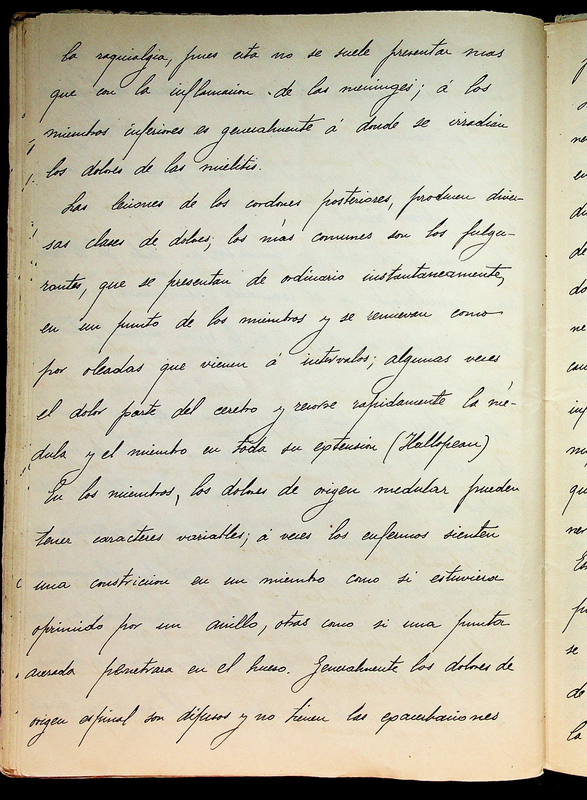 la raquialgia, pues esta no se suele presentar mas
que con la inflamacion de las meninges; á los
miembros inferiores es generalmente á donde se irradian
los dolores de las mielitis.
Las lesiones de los cordones posteriores, producen diver-
sas clases de dolores; los más comunes son los fulgu-
rantes, que se presentan de ordinario instantaneamente,
en un punto de los miembros y se renuevan como
por oleadas que vienen á intervalos; algunas veces
el dolor parte del cerebro y recorre rapidamente la mé-
dula y el miembro en toda su extension (Hallopeau)
En los miembros, los dolores de origen medular pueden
tener caracteres variables; á veces los enfermos sienten
una constricion en un miembro como si estuviera
oprimido por un anillo, otras como si una punta
acerada penetrara en el hueso. Generalmente los dolores de
origen espinal son difusos y no tienen las exacerbaciones